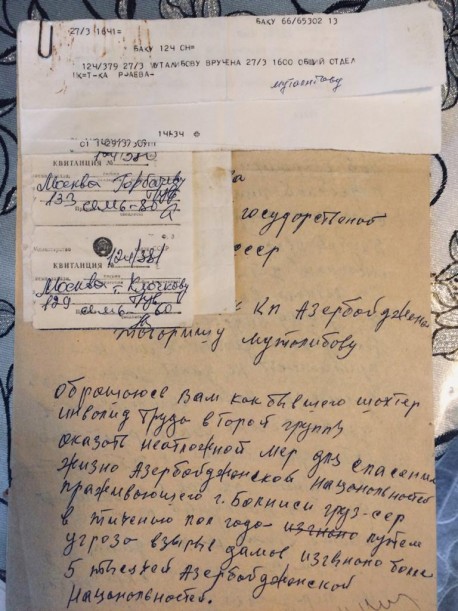 27/3 1641=
БАКУ 66/65302 13
БАКУ 124 СН=
124/379 27/3 МУТАЛИБОВУ ВРУЧЕНА 27/3 1600 ОБЩИЙ ОТДЕЛ
муталибову
КВИТАНЦИЯ №
Москва Горбачеву
133
КВИТАНЦИЯ
124/381
Москва Крючкову
129
государственой
ссср
КП Азербайджана
товарищу муталибову
обращаюсе Вам как бывшего шохтер
инволид Труда второй группы
оказать неотложной мер для спасения
жизно Азербойджонской Национольностей
праживающего г. Болниси груз-сер
в тичению пол года изгнано путем
угроза взырве дамов изгнано боле
5 тысечей Азербойджонской
Национольностей.